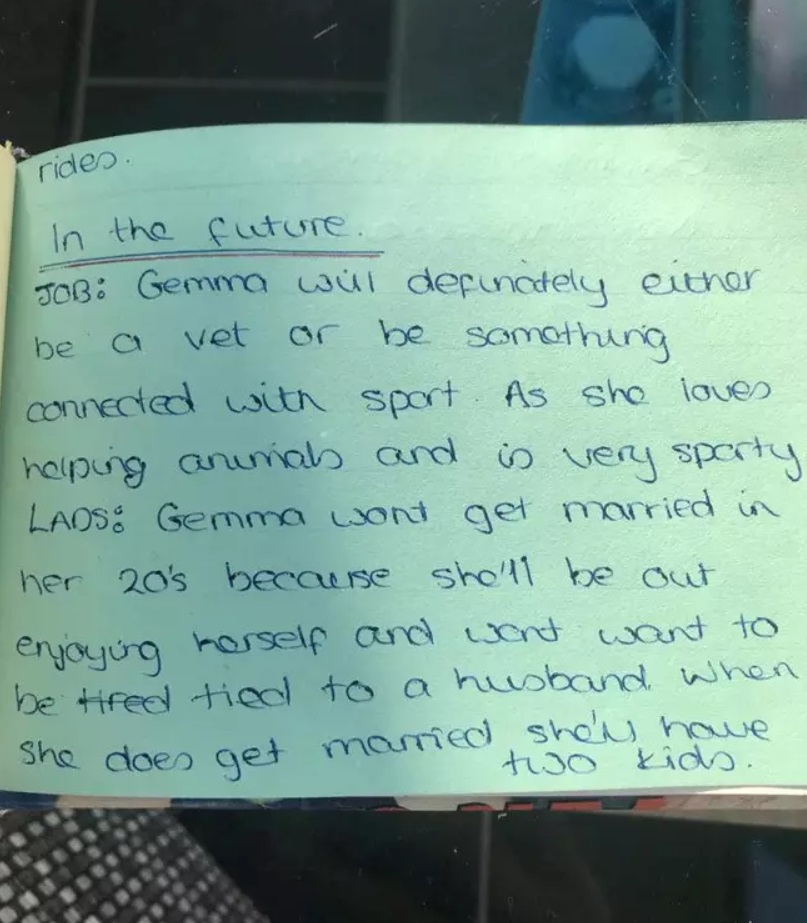 rides.
In the future.
JOB: Gemma will definately either
be a vet or be something
connected with sport. As she loves
helping animals and is very sporty
LADS: Gemma wont get married in
her 20's because she'll be out
enjoying herself and wont want to
be tired tied to a husband. When
she does get married she'll have
two kids.